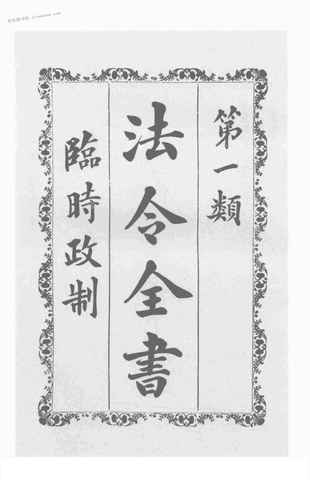 第一類
法令全書
臨時政制